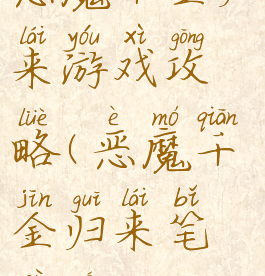 lái yóu xì gōng
来游戏攻
lüè è mó qiān
略(恶魔千
jīn guī lái bǐ
金归来笔